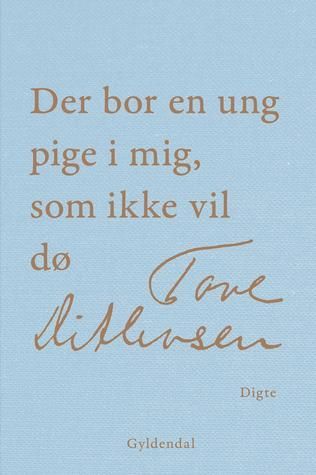 Der bor en ung
pige i mig,
som ikke vil
dø
Tove
Ditlevsen
Digte
Gyldendal